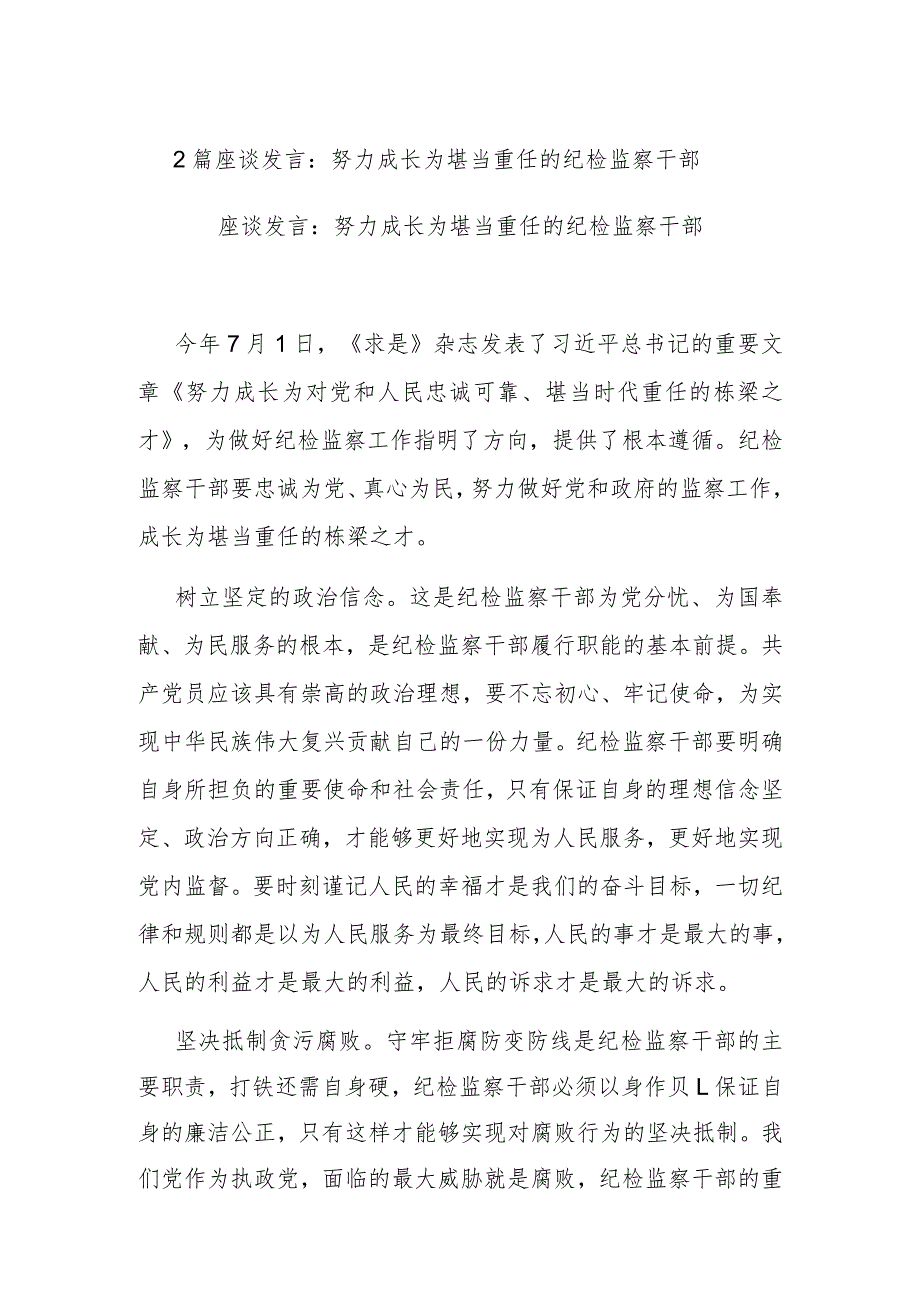 2篇座谈发言：努力成长为堪当重任的纪检监察干部
座谈发言：努力成长为堪当重任的纪检监察干部
今年7月1日，《求是》杂志发表了习近平总书记的重要文
章《努力成长为对党和人民忠诚可靠、堪当时代重任的栋梁之
才》，为做好纪检监察工作指明了方向，提供了根本遵循。纪检
监察干部要忠诚为党、真心为民，努力做好党和政府的监察工作，
成长为堪当重任的栋梁之才。
树立坚定的政治信念。这是纪检监察干部为党分忧、为国奉
献、为民服务的根本，是纪检监察干部履行职能的基本前提。共
产党员应该具有崇高的政治理想，要不忘初心、牢记使命，为实
现中华民族伟大复兴贡献自己的一份力量。纪检监察干部要明确
自身所担负的重要使命和社会责任，只有保证自身的理想信念坚
定、政治方向正确，才能够更好地实现为人民服务，更好地实现
党内监督。要时刻谨记人民的幸福才是我们的奋斗目标，一切纪
律和规则都是以为人民服务为最终目标，人民的事才是最大的事，
人民的利益才是最大的利益，人民的诉求才是最大的诉求。
坚决抵制贪污腐败。守牢拒腐防变防线是纪检监察干部的主
要职责，打铁还需自身硬，纪检监察干部必须以身作贝L保证自
身的廉洁公正，只有这样才能够实现对腐败行为的坚决抵制。我
们党作为执政党，面临的最大威胁就是腐败，纪检监察干部的重